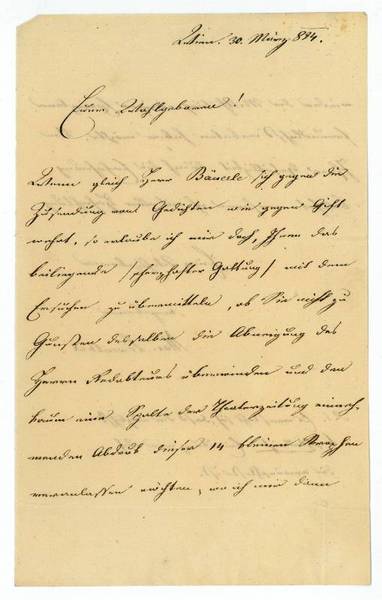 Wien. 30. März 844.
Euer Wohlgeboren!
Wenn gleich Herr Bäuerle sich gegen die
Zusendung von Gedichten wie gegen Gift
wehrt, so erlaube ich mir doch, Ihnen das
beiliegende /scherzhafter Gattung/ mit dem
Ersuchen zu übermitteln, ob Sie nicht zu
Gunsten desselben die Abneigung des
Herrn Redakteurs überwinden und den
kaum eine Spalte der Theaterzeitung einneh-
menden Abdruk dieser 14 kleinen Strophen
veranlassen möchten, wo ich mir dann